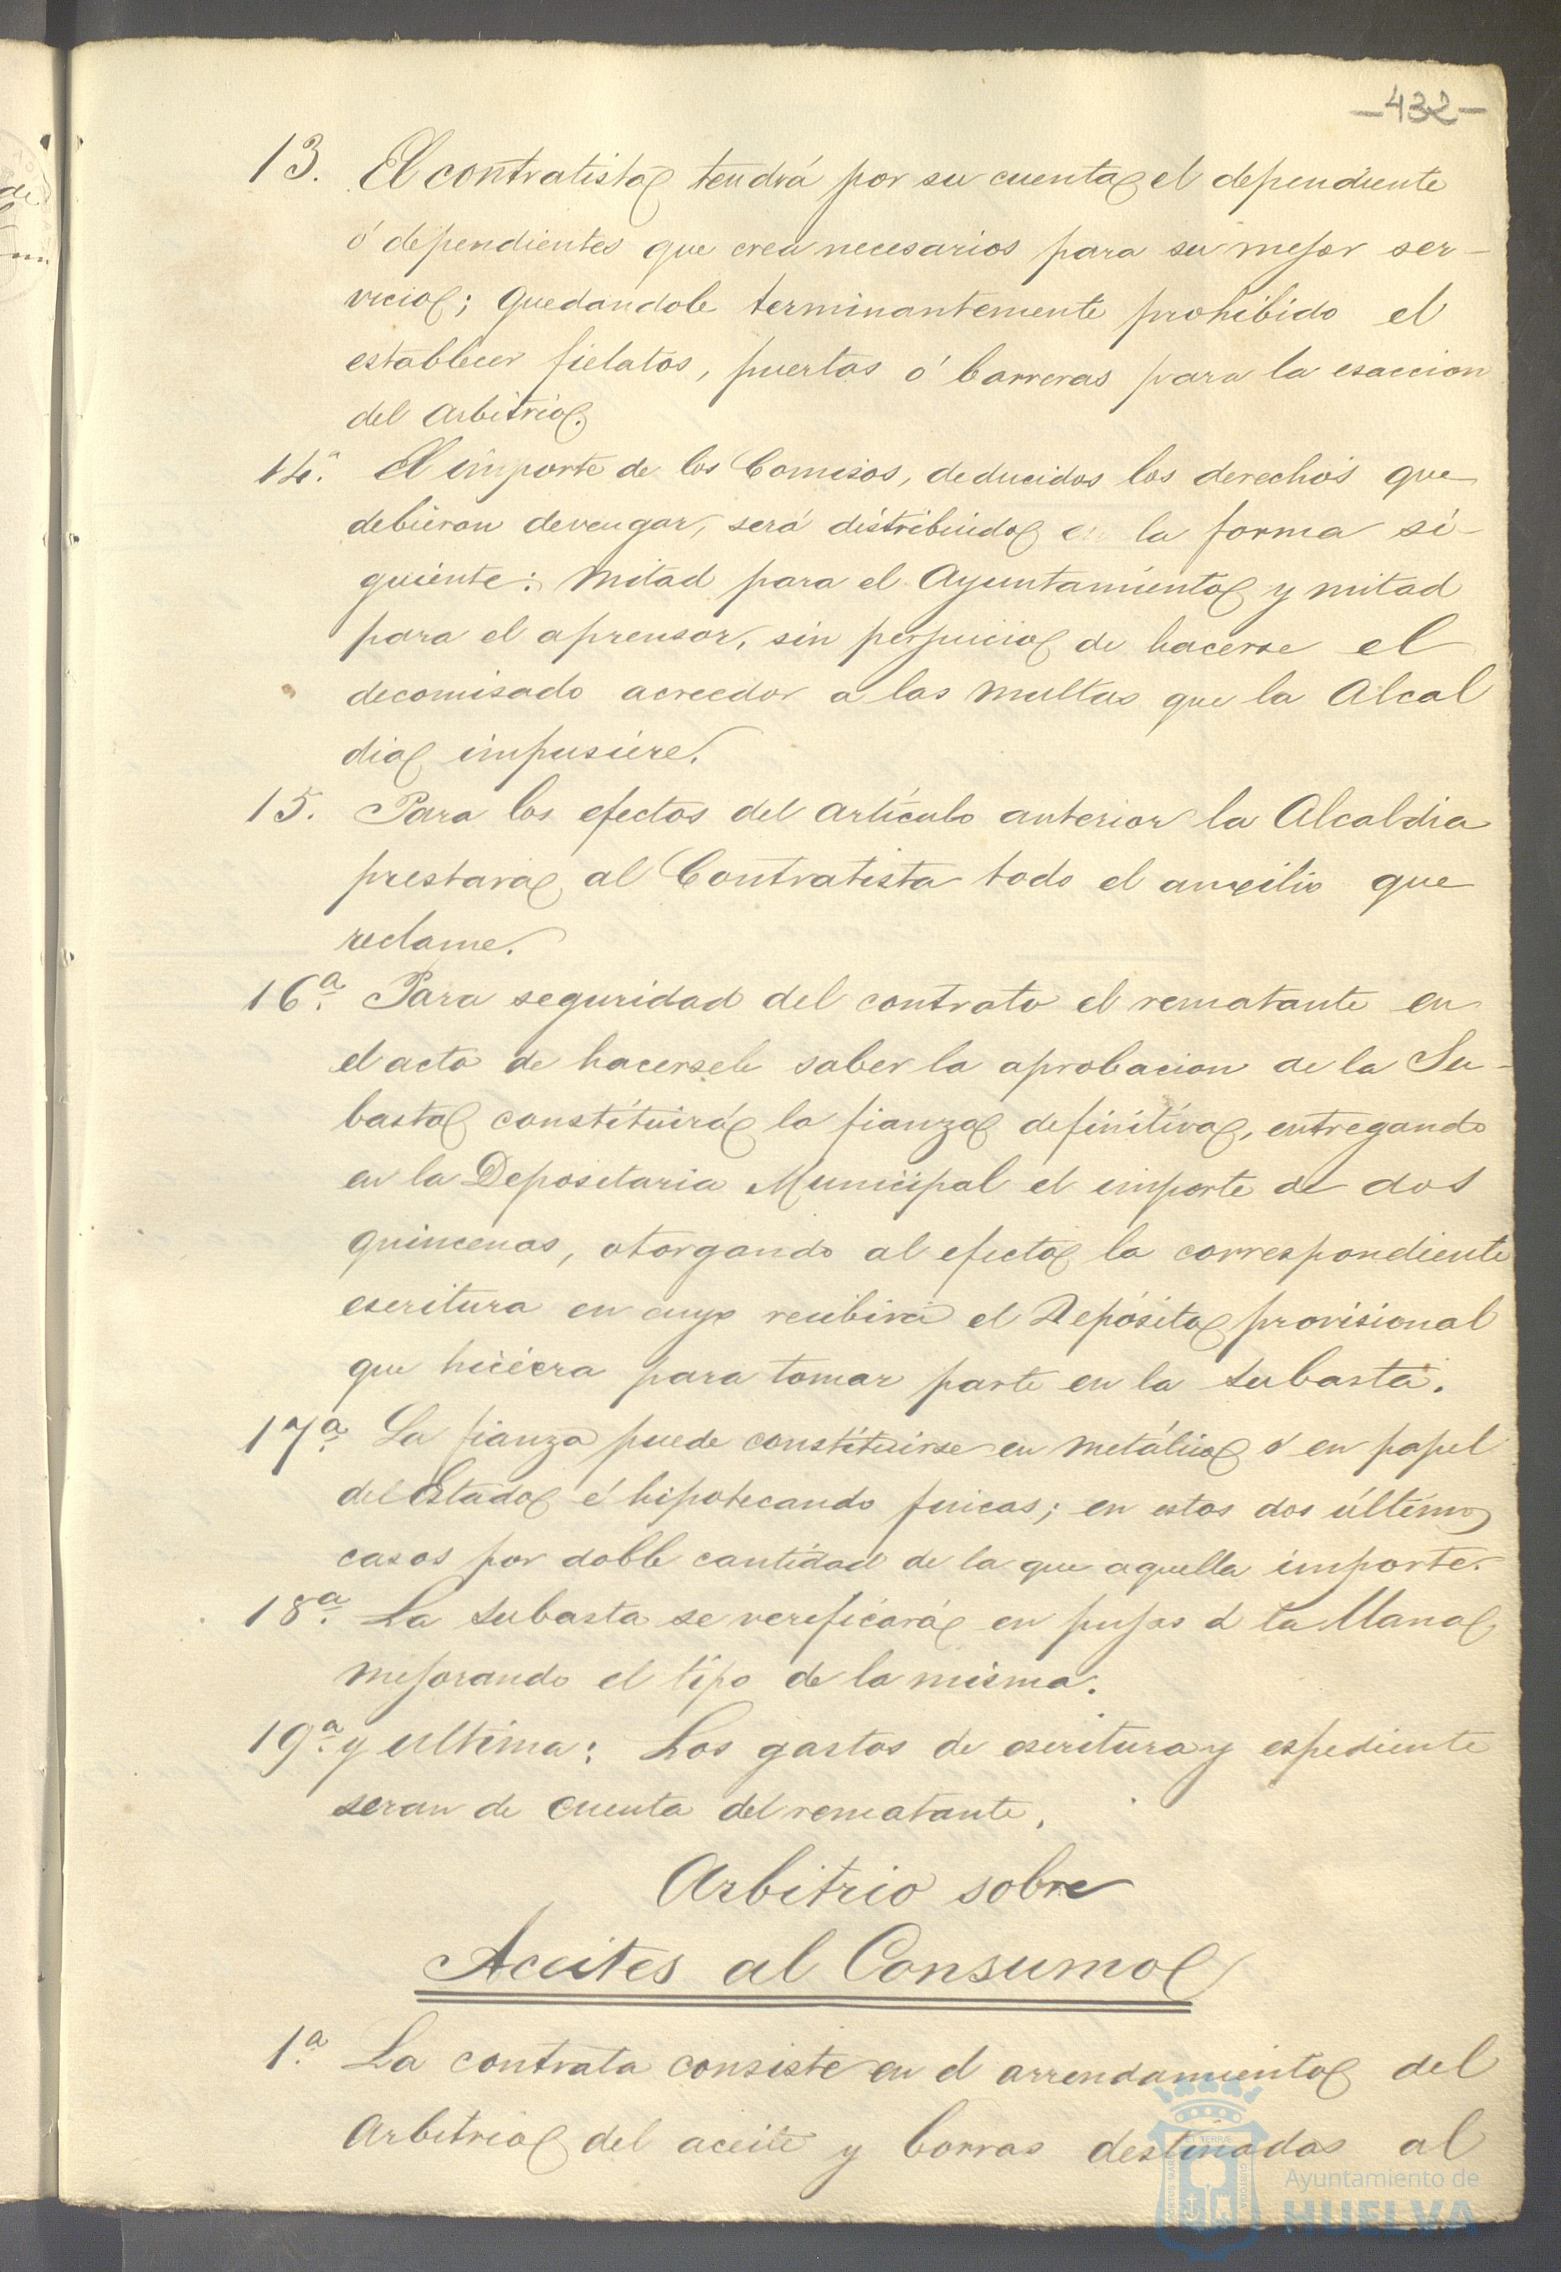 -432-
13. El contratista tendrá por su cuenta el dependiente
ó dependientes que crea necesarios para su mejor ser-
vicio; quedandole terminantemente prohibido el
establecer fielatos, puertas ó barreras para la esaccion
del arbitrio.
14.ª El importe de los Comisos, deducidos los derechos que
debieran devengar, será distribuido en la forma si-
guiente: mitad para el Ayuntamiento y mitad
para el aprensor, sin perjuicio de hacerse el
decomisado acreedor a las multas que la Alcal
dia impusiere.
15. Para los efectos del artículo anterior la Alcaldia
prestara al Contratista todo el auxilio que
reclame.
16.ª Para seguridad del contrato el rematante en
el acto de hacersele saber la aprobacion de la Su-
basta constituirá la fianza definitiva, entregando
en la Depositaria Municipal el importe de dos
quincenas, otorgando al efecto la correspondiente
escritura en cuyo recibirá el Depósito provisional
que hiciera para tomar parte en la subasta.
17.ª La fianza puede constituirse en metálico ó en papel
del Estado é hipotecando fincas; en estos dos últimos
casos por doble cantidad de la que aquella importe.
18.ª La subasta se verificará en pujas á la llana
mejorando el tipo de la misma.
19.ª y ultima: Los gastos de escritura y espediente
seran de cuenta del rematante.
Arbitrio sobre
Aceites al Consumo
1.ª La contrata consiste en el arrendamiento del
arbitrio del aceite y borras destinadas al
Ayuntamiento de
HUELVA